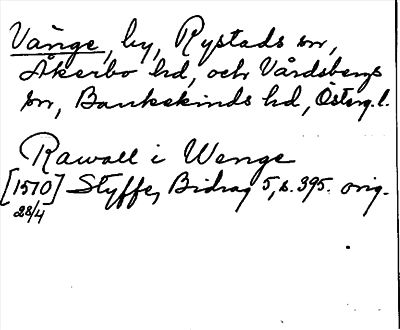 Vänge, by, Rystads sn,
Åkerbo hd, och Vårdsbergs
sn, Bankekinds hd, Österg. l.
Rawall i Wenge
[1510] Styffe, Bidrag 5, s. 395. orig.
28/4